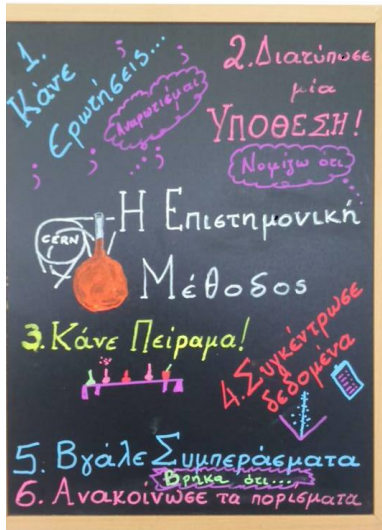 1.
Κάνε
Ερωτήσεις...
Αναρωτιέμαι
2. Διατύπωσε
μία
ΥΠΟΘΕΣΗ!
Νομίζω ότι
CERN
Η Επιστημονική
Μέθοδος
3. Κάνε Πείραμα!
4. Συγκέντρωσε
δεδομένα
5. Βγάλε Συμπεράσματα
Βρήκα ότι...
6. Ανακοίνωσε τα πορίσματα